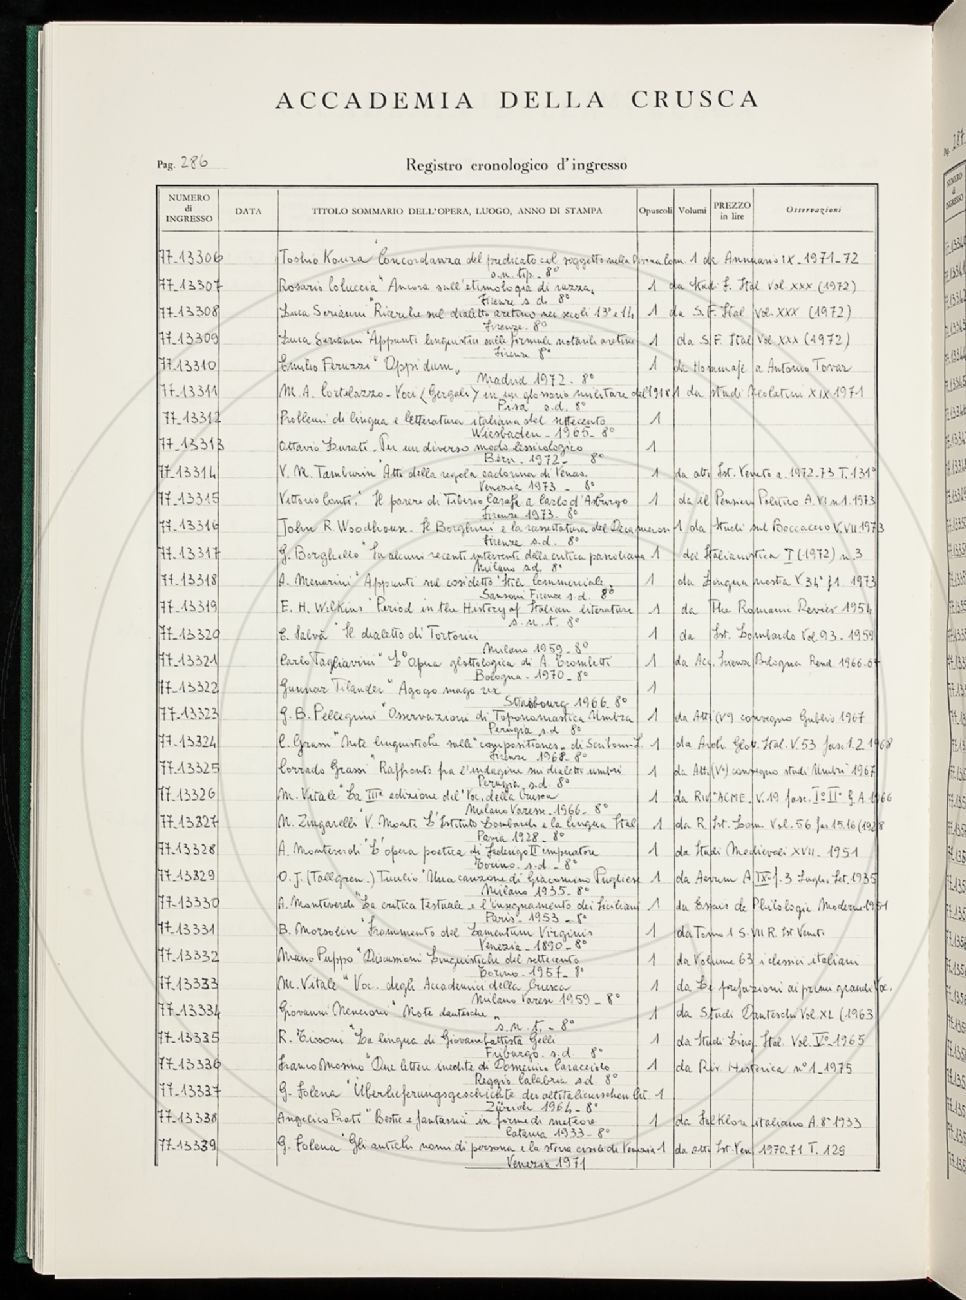 ACCADEMIA DELLA CRUSCA
Pag. 286
Registro cronologico d'ingresso
NUMERO di INGRESSO DATA TITOLO SOMMARIO DELL'OPERA, LUOGO, ANNO DI STAMPA Opuscoli Volumi PREZZO in lire Osservazioni
77_13306 Toshio "Concordanza del predicato col soggetto nella 1 da Annuario IX_1971_72
s.n. tip. 8°
77_13307 Rosario Coluccia "Ancora sull'etimologia di razza, 1 da Studi F. Ital Vol. XXX (1972)
Firenze s.d. 8°
77_13308 Luca Serianni "Ricerche sul dialetto aretino nei secoli 13° e 14 1 da S.F. Ital Vol. XXX (1972)
Firenze. 8°
77_13309 Luca Serianni "Appunti linguistici sulle formule notarili aretine 1 da S.F. Ital Vol. XXX (1972)
Firenze 8°
77_13310 Emilio Peruzzi "Oppidum, 1 da Homenaje a Antonio Tovar
Madrid 1972. 8°
77_13311 M.A. Cortelazzo_ Voci (Gergali) in un glossario militare del 1918 1 da Studi XIX 1971
Pisa s.d. 8°
77_13312 Problemi di lingua e letteratura italiana del settecento 1
Wiesbaden_ 1965_ 8°
77_13313 Ottavio Lurati_ Per un diverso modo lessicologico 1
Bern_ 1972_ 8°
77_13314 V.M. Tamburini Atti della regola 1 da atti Ist. Veneto a. 1972.73 T. 131°
Venezia 1973_ 8°
77_13315 Vittorio Conti "Il parere di Tiberio Carafa a Carlo d'Asburgo 1 da il Pensiero Politico A. VI n.1. 1973
Firenze 1973_ 8°
77_13316 John R. Woodhouse_ Il Borghini e la rassettatura del Decameron 1 da Studi sul Boccaccio V. VII 1973
Firenze s.d. 8°
77_13317 G. Borghello "Su alcuni recenti interventi della critica pariniana 1 da Italianistica I (1972) n.3
Milano s.d. 8°
77_13318 A. Menarini "Appunti sul cosidetto 'Stile Commerciale, 1 da Lingua nostra V. 34° f 1. 1973
Sansoni Firenze s.d. 8°
77_13319 E.H. Wilkins "Period in the History of Italian literature 1 da The Romanic Review 1954
s.n.t. 8°
77_13320 C. Salvà "Il dialetto di Tortorici 1 da Ist. Lombardo Vol. 93_ 1959
Milano 1959_ 8°
77_13321 Carlo Tagliavini "L'Opera glottologica di A. Trombetti 1 da Acc. Scienze Bologna Rend. 1966-67
Bologna_ 1970_ 8°
77_13322 Gunnar Tilander "Agogo mago 1
Strasbourg 1966. 8°
77_13323 G.B. Pellegrini "Osservazioni di Toponomastica Umbra 1 da Atti (V°) convegno Gubbio 1967
Perugia s.d. 8°
77_13324 C. Grassi "Note linguistiche sulle "compositiones_ di Scribonio L. 1 da Arch. Glott. Ital. V. 53 fasc. 1.2 1968
Firenze 1968_ 8°
77_13325 Corrado Grassi "Rapporto fra l'indagine sui dialetti umbri 1 da Atti (V°) convegno studi Umbri 1967
Perugia, s.d. 8°
77_13326 M. Vitale "La IIIª edizione del Voc. della Crusca 1 da Riv "ACME_ V. 19 fasc. I° II° G.A. 1966
Milano Varese_ 1966_ 8°
77_13327 N. Zingarelli V. Monti L'Istituto Lombardo e la lingua Ital 1 da R. Ist. Lom. Vol. 56 fas 15.16 (1928
Pavia 1928_ 8°
77_13328 A. Monteverdi "L'opera poetica di Federigo II imperatore 1 da Studi Medievali XVII_ 1951
Torino_ s.d_ 8°
77_13329 O.J. (Tallgren_) Tuulio "Una canzone di Giacomino Pugliese 1 da Aevum A. IX f. 3 Luglio Set. 1935
Milano 1935_ 8°
77_13330 A. Monteverdi "La critica testuale e l'insegnamento dei Siciliani 1 da Essais de Philologie Moderne 1951
Paris_ 1953_ 8°
77_13331 B. Morsolin "Frammento del Lamentum Virginis 1 da Tomo 1 S. VII R. Ist Veneto
Venezia_ 1890_ 8°
77_13332 Mario Puppo "Discussioni Linguistiche del settecento 1 da Volume 63 i classici italiani
Torino_ 1957_ 8°
77_13333 M. Vitale "Voc. degli Accademici della Crusca 1 da Le prefazioni ai primi grandi Voc.
Milano Varese 1959_ 8°
77_13334 Giovanni Nencioni "Note dantesche 1 da Studi Danteschi Vol XL (1963
s.n.t. 8°
77_13335 R. Tissoni "La lingua di Giovambattista Gelli 1 da Studi Ling. Ital. Vol. V° 1965
Friburgo_ s.d. 8°
77_13336 Franco Mosino "Due lettere inedite di Domenico Caracciolo 1 da Riv. Historica n°1_1975
Reggio Calabria s.d. 8°
77_13337 G. Folena "Überlieferungsgeschichte der altitalienischen Lit. 1
Zürich 1964_ 8°
77_13338 Angelico Prati "Bestie e fantasmi in forme di meteore 1 da Folklore italiano A. 8° 1933
Catania 1933_ 8°
77_13339 G. Folena "Gli antichi nomi di persona e la storia civile di Venezia 1 da atti Ist. Ven 1970.71 T. 129
Venezia 1971